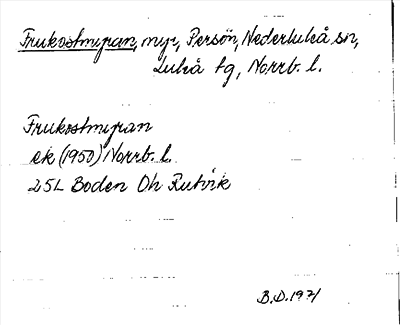 Frukostmyran, myr, Persön, Nederluleå sn,
Luleå tg, Norrb. l.
Frukostmyran
ek (1950) Norrb. l.
25L Boden Öh Rutvik
B.D. 1971